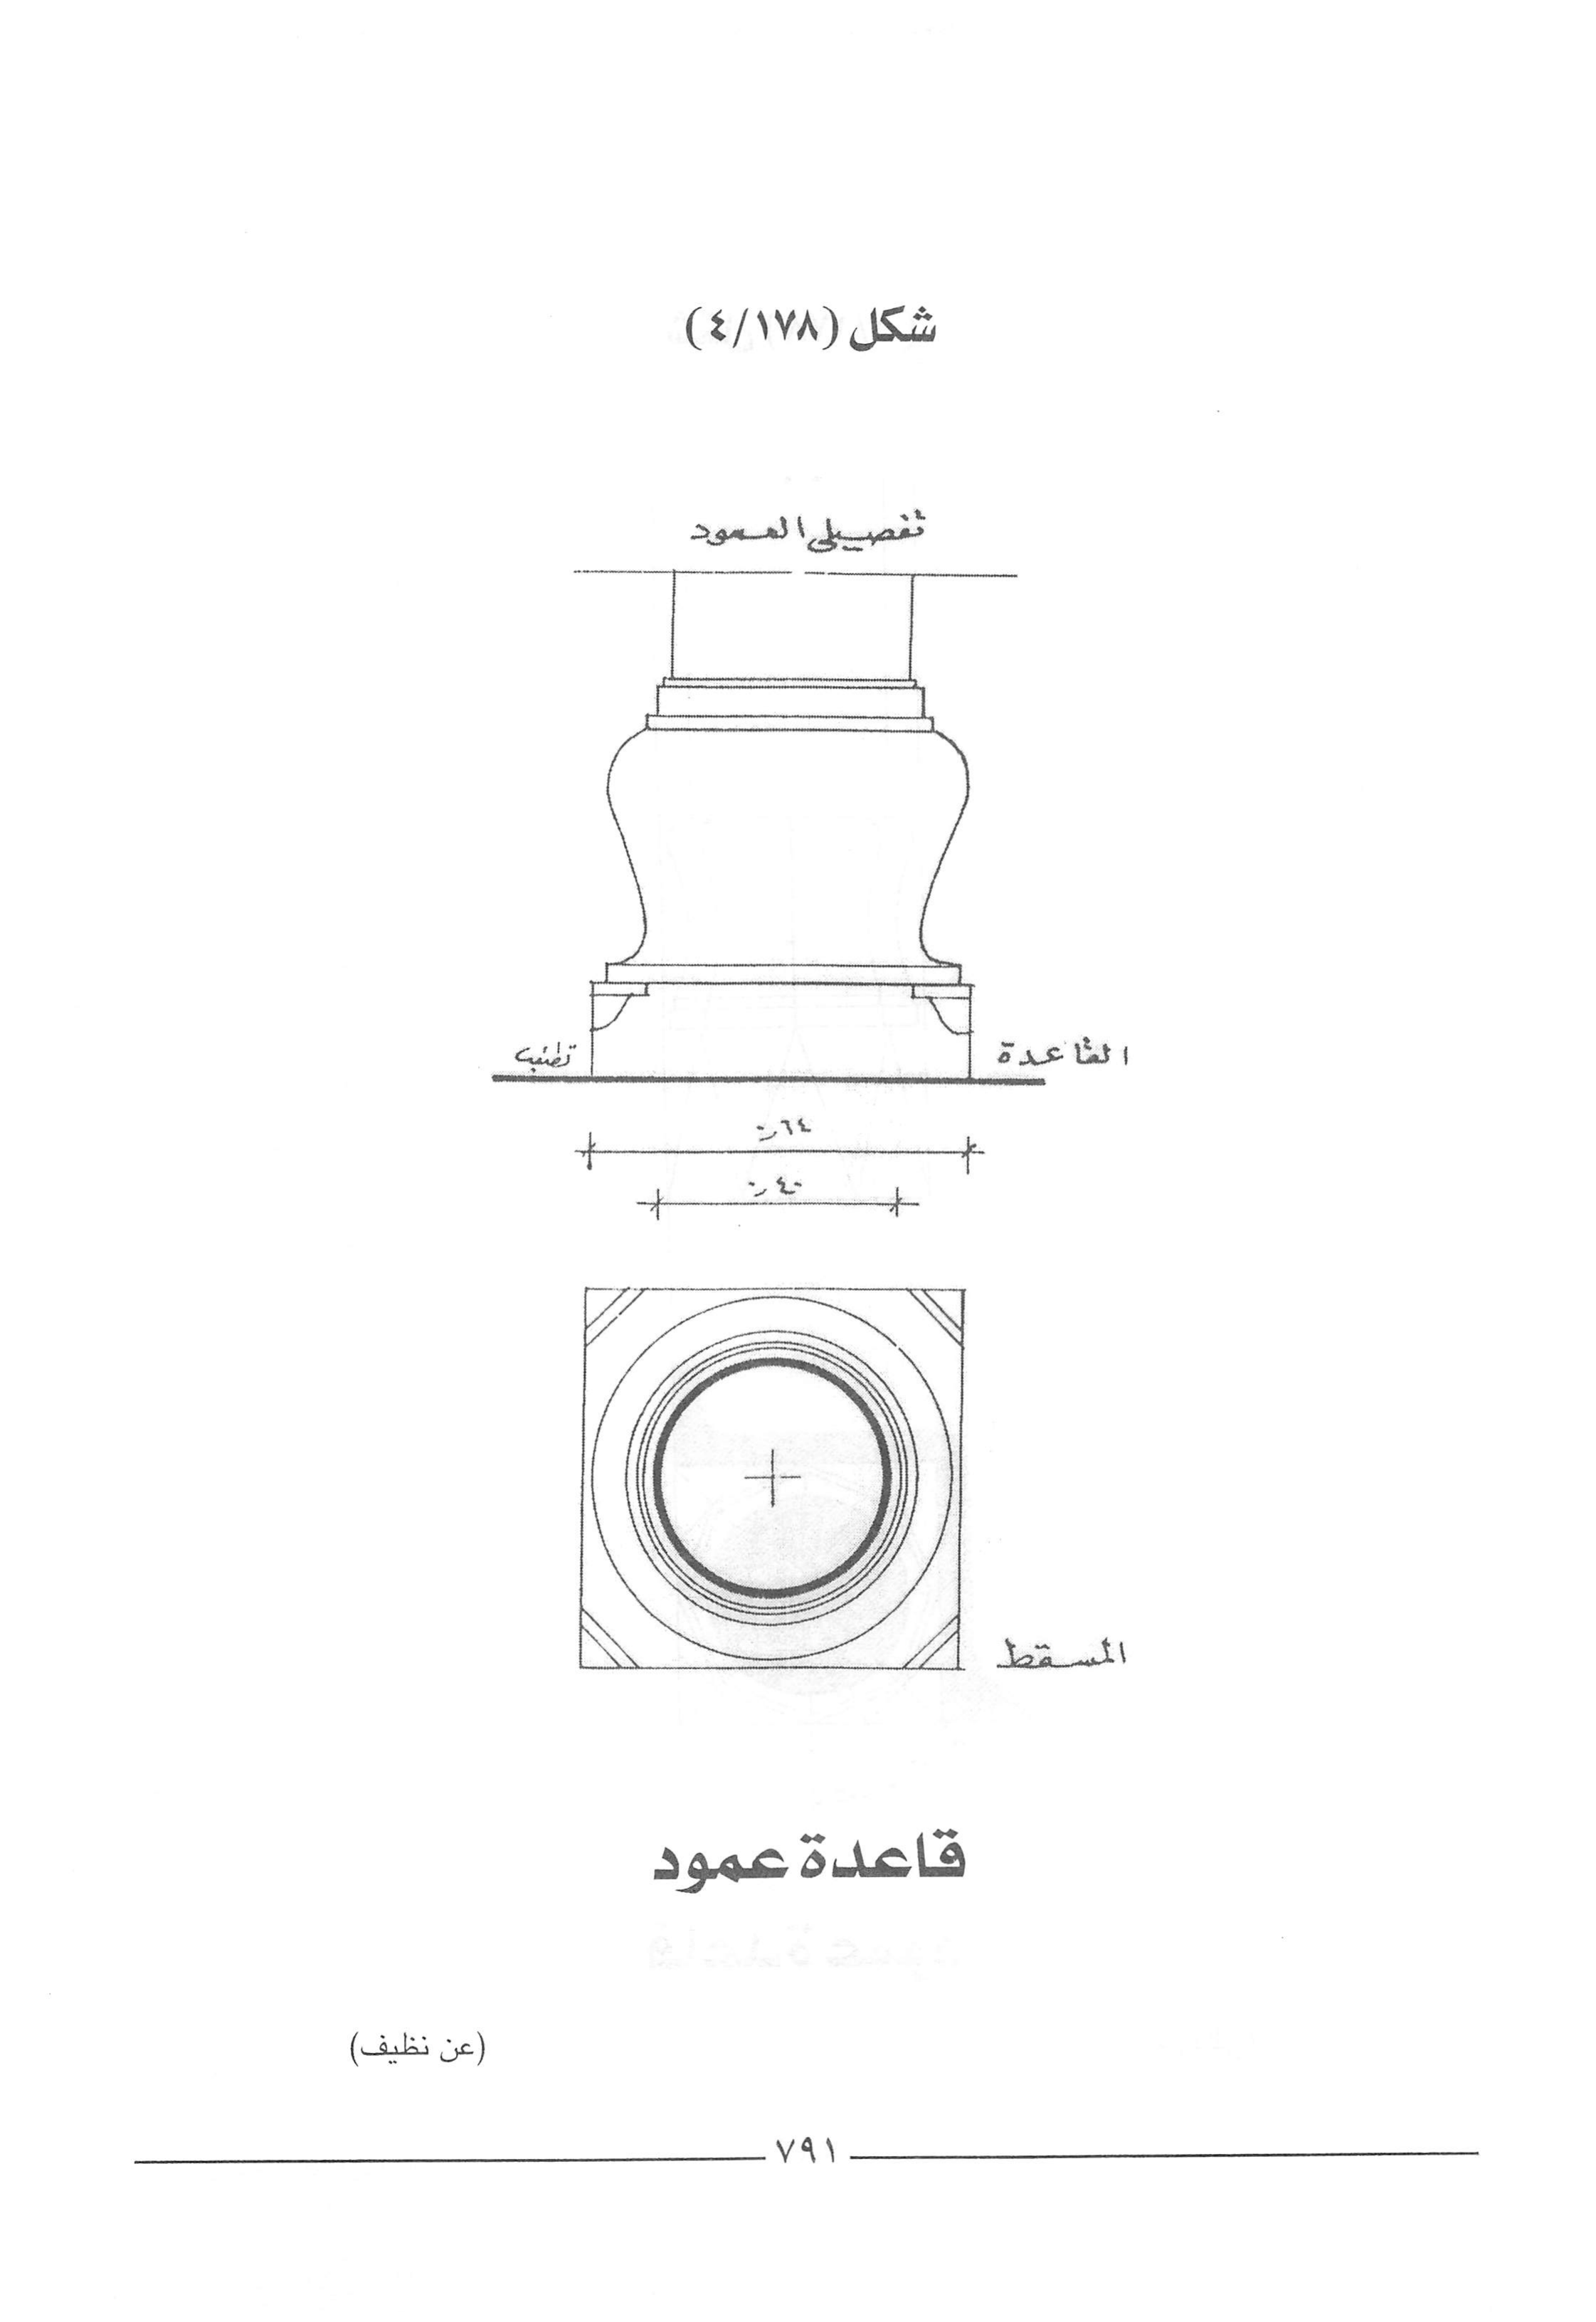 شكل (٤/١٧٨)
تفصيلى العمود
القاعدة
٠٫٦٤
٠٫٤٠
المسقط
قاعدة عمود
(عن نظيف)
٧٩١